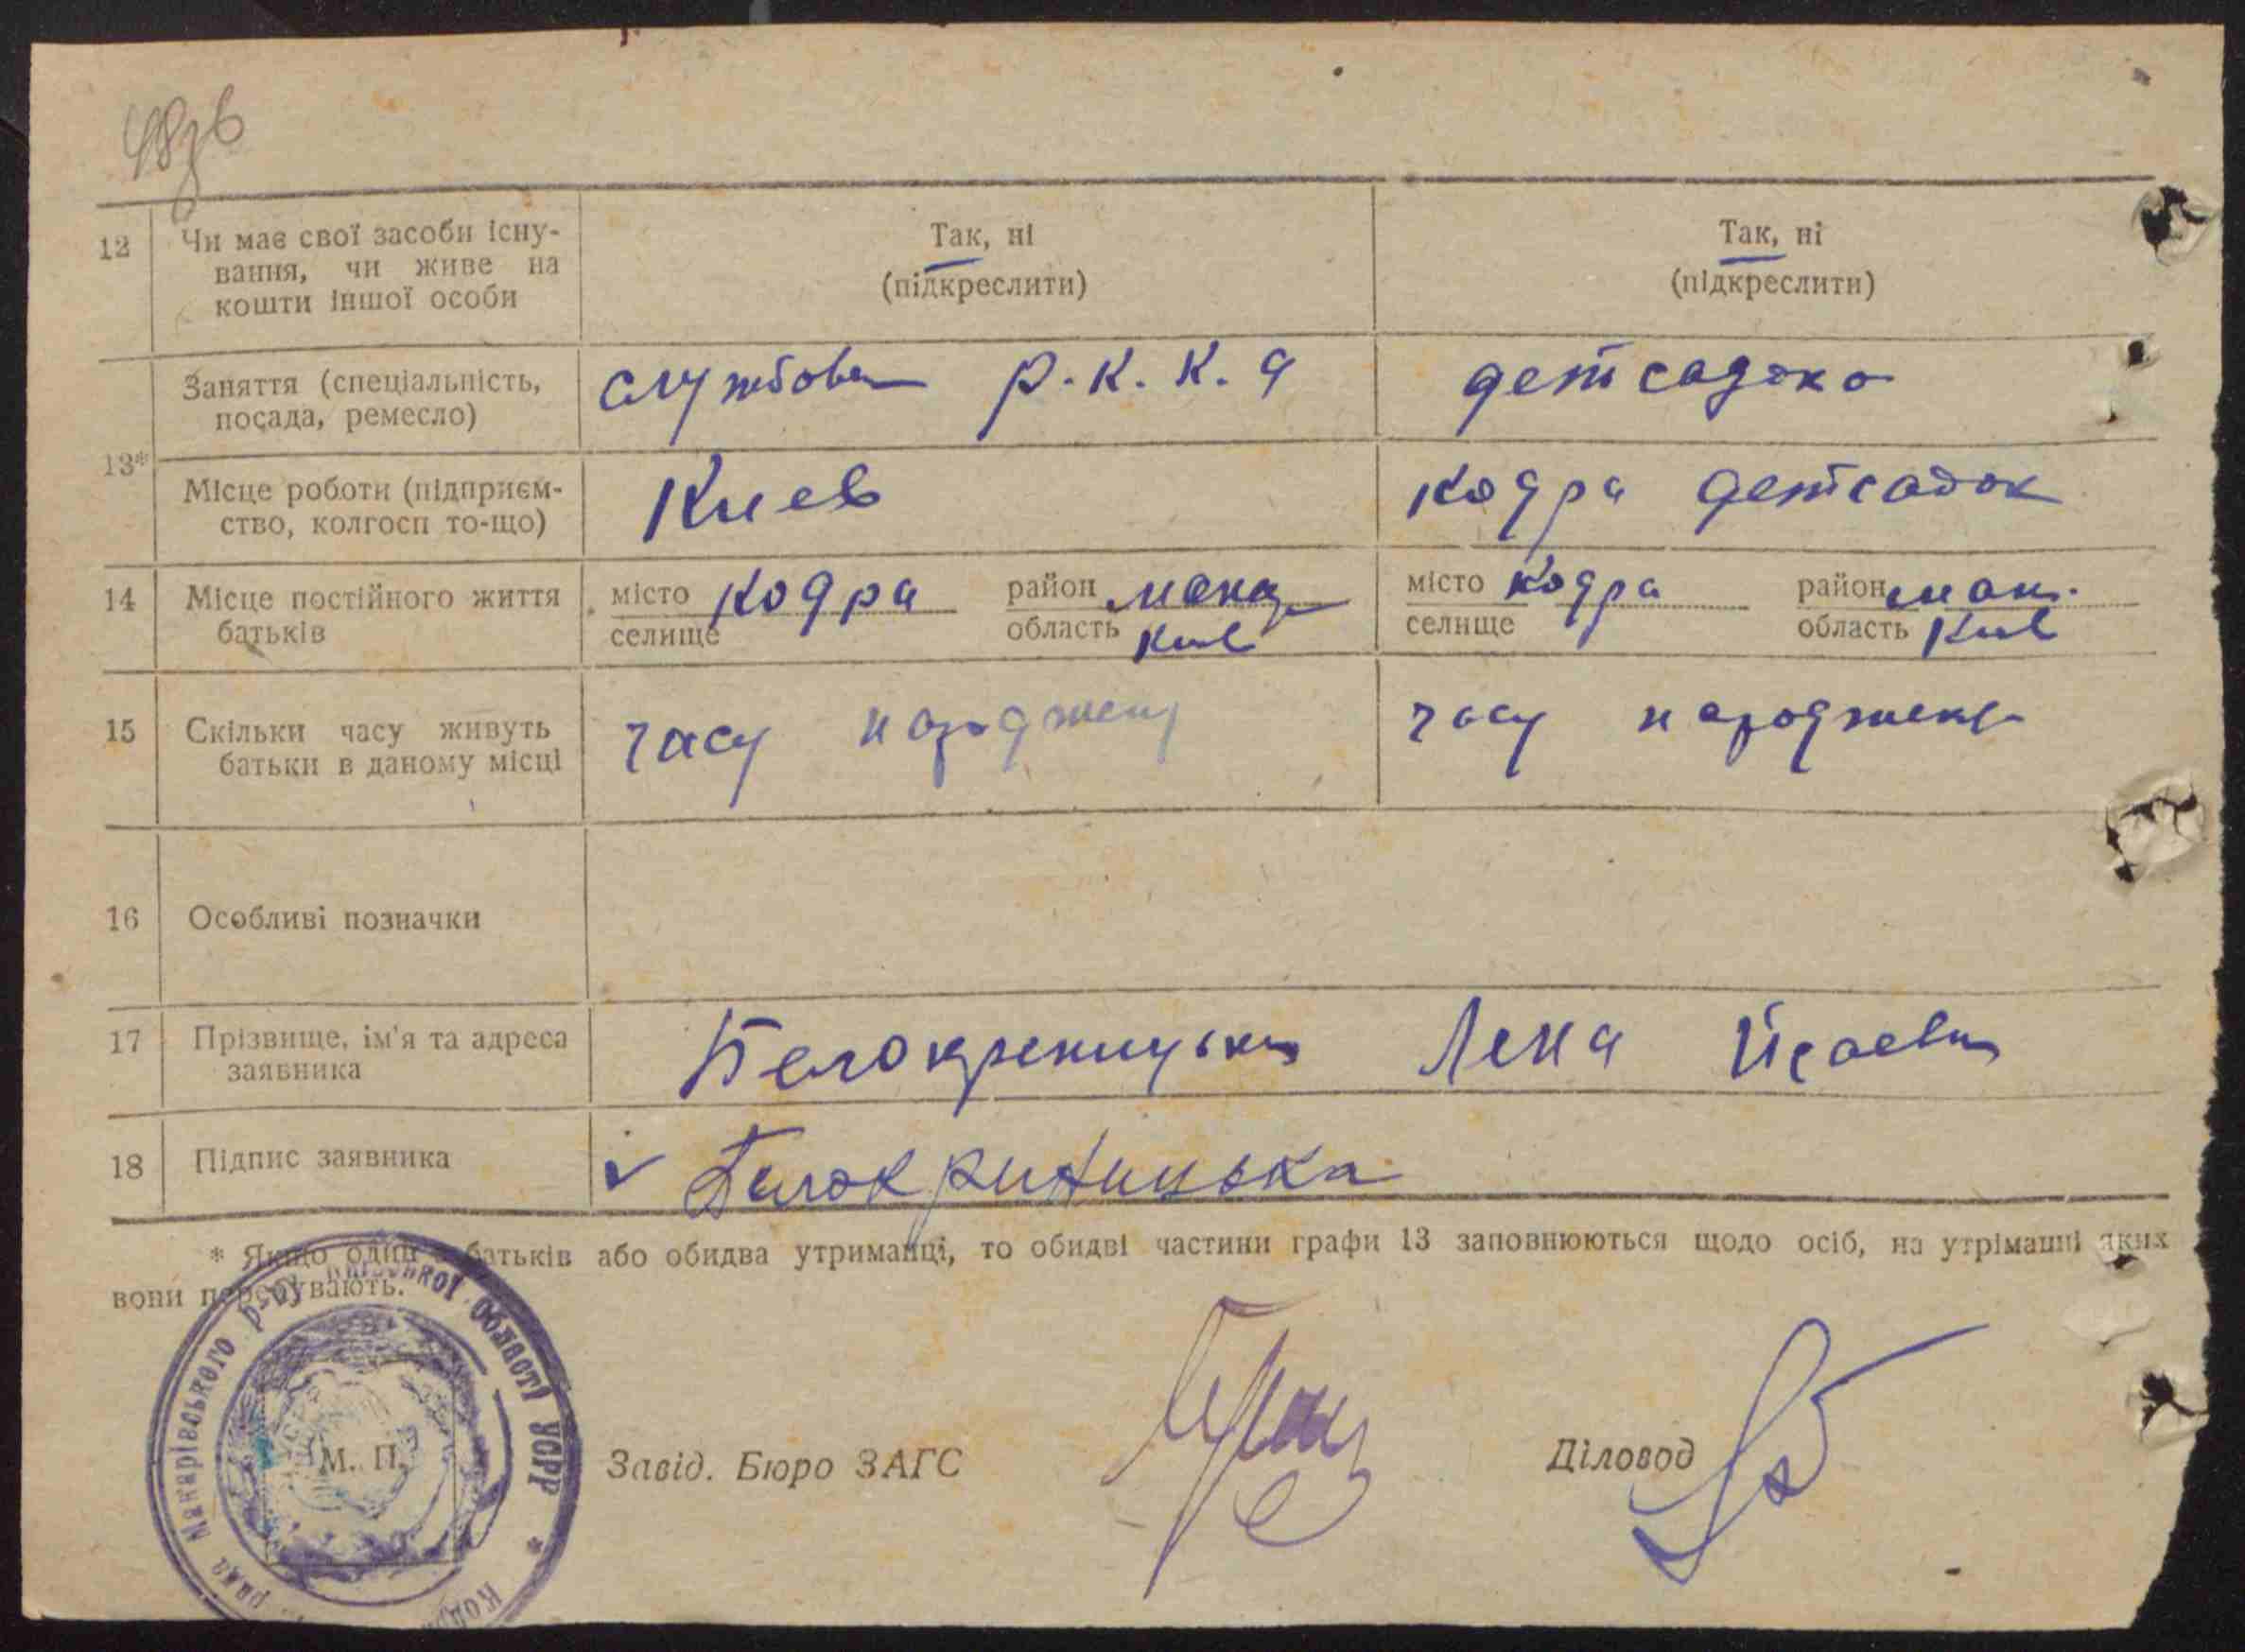 48зв
12 Чи має свої засоби існу-
вання, чи живе на
кошти іншої особи
Так, ні
(підкреслити)
Так, ні
(підкреслити)
13*
Заняття (спеціальність,
посада, ремесло)
службовец Р. К. К. А
детсадоко
Місце роботи (підприєм-
ство, колгосп то-що)
Киев
Кодра Детсадок
14 Місце постійного життя
батьків
місто Кодра район Мака
селище область Киев
місто Кодра район Мак.
селище область Киев
15 Скільки часу живуть
батьки в даному місці
часу народжену
часу народжену
16 Особливі позначки
17 Прізвище, ім'я та адреса
заявника
Белокреницька Лена Исаевна
18 Підпис заявника
Белокриницька
* Якщо один з батьків або обидва утриманці, то обидві частини графи 13 заповнюються щодо осіб, на утріманні яких
вони перебувають.
рада Макарівського р-ну Київської Області УСРР *
М. П.
Завід. Бюро ЗАГС
Діловод